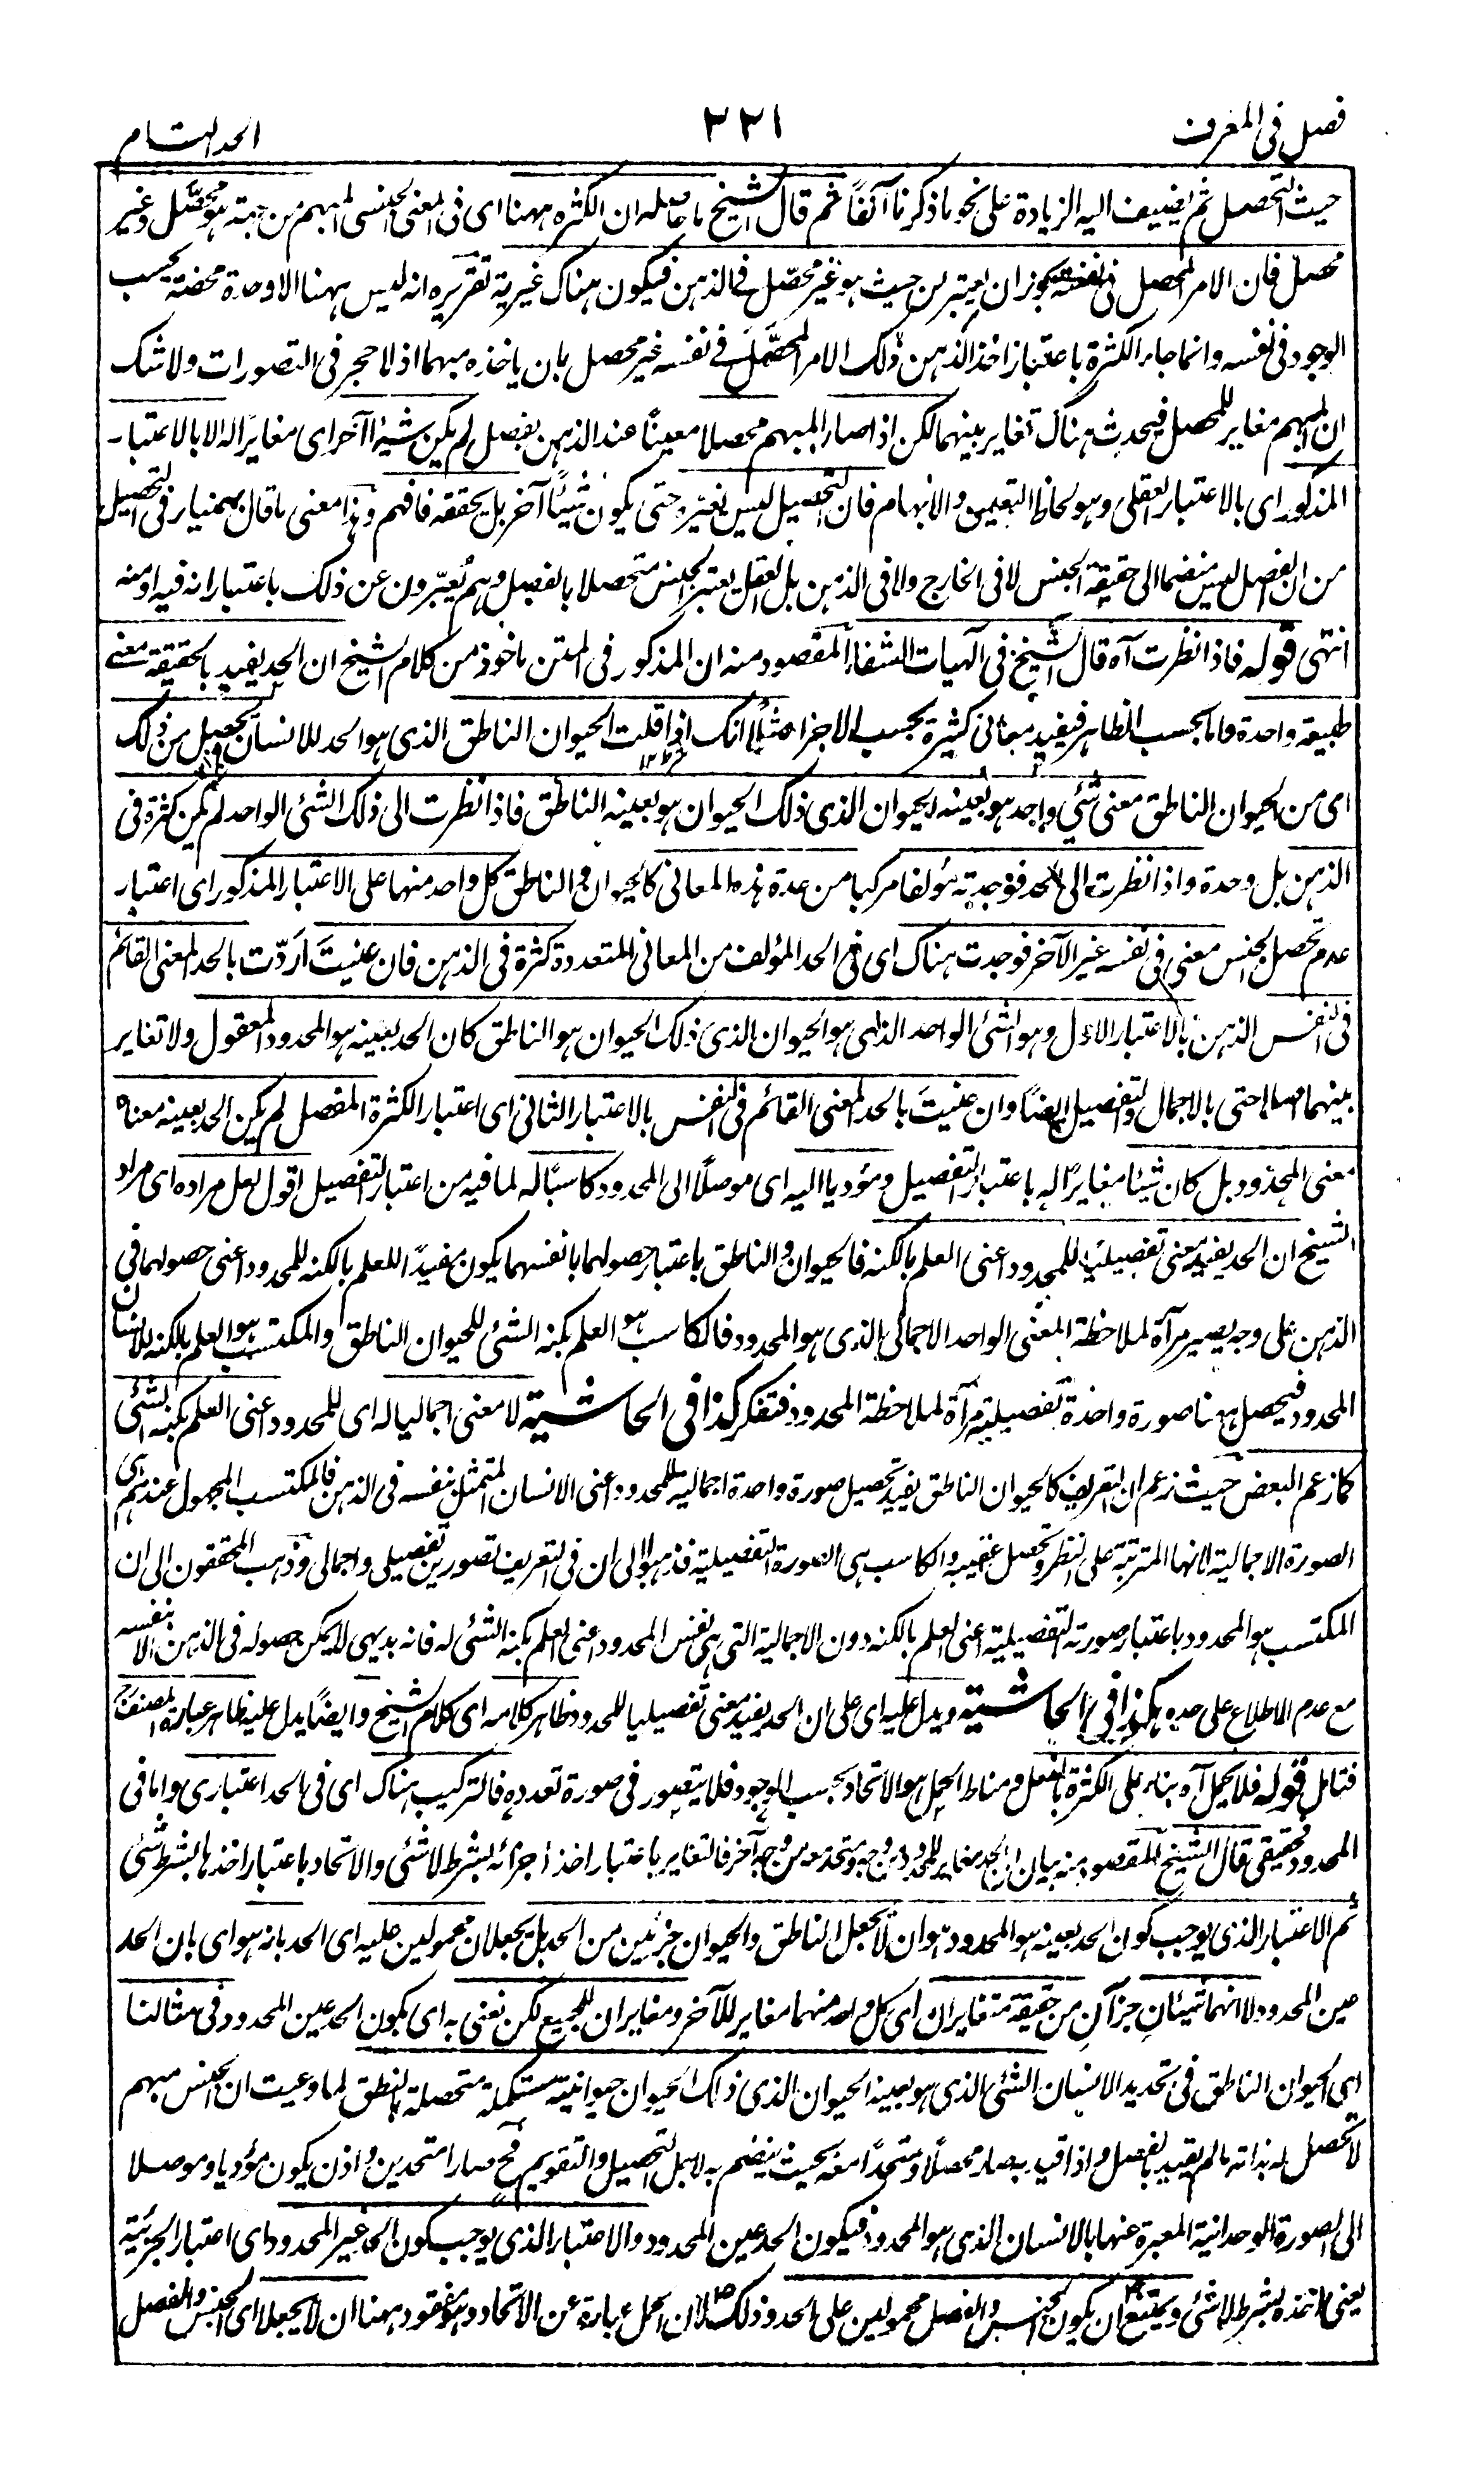 فصل في المعرف ٣٢١ الحد التام
حيث التحصل ثم يضيف اليه الزيادة على نحو ما ذكرنا آنفاً ثم قال الشيخ ما حاصله ان الكثرة ههنا اى فى المعنى الجنسى المبهم من جهة هو محصَّل وغير
محصل فان الامر المحصل فى نفسه يجوز ان يعتبر من حيث هو غير محصَّل فى الذهن فيكون هناك غيرية تقريره انه ليس ههنا الا وحدة محضة بحسب
الوجود فى نفسه وانما جاء الكثرة باعتبار اخذ الذهن ذلك الامر المحصَّل فى نفسه غير محصل بان ياخذه مبهما اذ لا حجر فى التصورات ولا شك
ان المبهم مغاير للمحصل فيحدث هناك تغاير بينهما لكن اذا صار المبهم محصلا معيناً عند الذهن بفصل لم يكن شيئا آخر اى مغايرا له الا بالاعتبار
المذكور اى بالاعتبار العقلى وهو لحاظ التعيين والابهام فان التحصيل ليس يغيّره حتى يكون شيئاً آخر بل يحققه فافهم وهذا معنى ما قال بهمنيار فى التحصيل
من ان الفصل ليس منضما الى حقيقة الجنس لا فى الخارج ولا فى الذهن بل العقل يعتبر الجنس متحصلا بالفصل وهم يُعبّرون عن ذلك باعتبار انه فيه او منه
انتهى قوله فاذا نظرت آه قال الشيخ فى آلهيات الشفاء المقصود منه ان المذكور فى المتن ماخوذ من كلام الشيخ ان الحد يفيد بالحقيقة معنى
طبيعة واحدة واما بحسب الظاهر فيفيد معانى كثيرة بحسب الاجزاء مثلا انك اذا قلت الحيوان الناطق الذى هو الحد للانسان يحصل من ذلك
اى من الحيوان الناطق معنى شئ واحد هو بعينه الحيوان الذى ذلك الحيوان هو بعينه الناطق فاذا نظرت الى ذلك الشئ الواحد لم يكن كثرة فى
الذهن بل وحدة واذا نظرت الى الحد فوجدته مؤلفا مركبا من عدة هذه المعانى كالحيوان والناطق كل واحد منها على الاعتبار المذكور اى اعتبار
عدم تحصل الجنس معنى فى نفسه غير الآخر فوجدت هناك اى فى الحد المؤلف من المعانى المتعددة كثرة فى الذهن فان عنيتَ اَرَدّت بالحد المعنى القائم
فى النفس الذهن بالاعتبار الاول وهو الشئ الواحد الذى هو الحيوان الذى ذلك الحيوان هو الناطق كان الحد بعينه هو المحدود المعقول ولا تغاير
بينهما اصلا حتى بالاجمال والتفصيل ايضاً وان عنيتَ بالحد المعنى القائم فى النفس بالاعتبار الثانى اى اعتبار الكثرة المفصل لم يكن الحد بعينه معناه
معنى المحدود بل كان شيئا مغايرًا له باعتبار التفصيل ومؤديا اليه اى موصلًا الى المحدود كاسبًا له لما فيه من اعتبار التفصيل اقول لعل مراده اى مراد
الشيخ ان الحد يفيد معنى تفصيليًا للمحدود اعنى العلم بالكنه فالحيوان والناطق باعتبار حصولهما بانفسهما يكون مفيدًا للعلم بالكنه للمحدود اعنى حصولهما فى
الذهن على وجه يصير مرآة لملاحظة المعنى الواحد الاجمالى الذى هو المحدود فالكاسب هو العلم بكنه الشئ للحيوان الناطق والمكتسب هو العلم بالكنه للانسان
المحدود فيحصل ههنا صورة واحدة تفصيلية مرآة لملاحظة المحدود فتفكر كذا فى الحاشية لا معنى اجماليا له اى للمحدود اعنى العلم بكنه الشئ
كما زعم البعض حيث زعم ان التعريف كالحيوان الناطق يفيد تحصيل صورة واحدة اجمالية للمحدود اعنى الانسان المتمثل بنفسه فى الذهن فالمكتسب المجهول عندهم هى
الصورة الاجمالية لانها المترتبة على النظر وتحصل عقيبه والكاسب هى الصورة التفصيلية فذهبوا الى ان فى التعريف تصورين تفصيلى واجمالى وذهب المحققون الى ان
المكتسب هو المحدود باعتبار صورته التفصيلية اعنى العلم بالكنه دون الاجمالية التى هى نفس المحدود اعنى العلم بكنه الشئ له فانه بديهى لا يمكن حصوله فى الذهن الا بنفسه
مع عدم الاطلاع على حده هكذا فى الحاشية ويدل عليه اى على ان الحد يفيد معنى تفصيليا للمحدود ظاهر كلامه اى كلام الشيخ وايضًا يدل عليه ظاهر عبارة المصنف رح
فتامل قوله فلا يحمل آه بناء على الكثرة بالفعل ومناط الحمل هو الاتحاد بحسب الوجود فلا يتصور فى صورة تعدده فالتركيب هناك اى فى الحد اعتبارى واما فى
المحدود فحقيقى قال الشيخ المقصود منه بيان الحد مغاير للمحدود من وجه ومتحد معه من وجه آخر فالتغاير باعتبار اخذ اجزائه بشرط لا شئ والاتحاد باعتبار اخذها بشرط شئ
ثم الاعتبار الذى يوجب كون الحد بعينه هو المحدود هو ان لا تجعل الناطق والحيوان جزئين من الحد بل يجعلان محمولين عليه اى الحد بانه هو اى بان الحد
عين المحدود لا انهما شيئان جزآن من حقيقة متغايران اى كل واحد منهما مغاير للآخر ومغايران للجميع لكن نعنى به اى بكون الحد عين المحدود فى مثالنا
اى الحيوان الناطق فى تحديد الانسان الشئ الذى هو بعينه الحيوان الذى ذلك الحيوان حيوانيته مستكملة متحصلة بالنطق لما وعيت ان الجنس مبهم
لا تحصل له بذاته ما لم يقيد بالفصل واذا قيد به صار محصلًا ومتحدًا معه بحيث ينضم به لاجل التحصيل والتقويم فح صارا متحدين واذن يكون مؤديا وموصلا
الى الصورة الوحدانية المعبرة عنها بالانسان الذى هو المحدود فيكون الحد عين المحدود والاعتبار الذى يوجب كون الحد غير المحدود اى اعتبار الجزئية
يعنى لاخذه بشرط لا شئ ويمتنع ان يكون الجنس والفصل محمولين على الحد وذلك لان الحمل عبارة عن الاتحاد وهو مفقود ههنا ان لا يجعلا اى الجنس والفصل